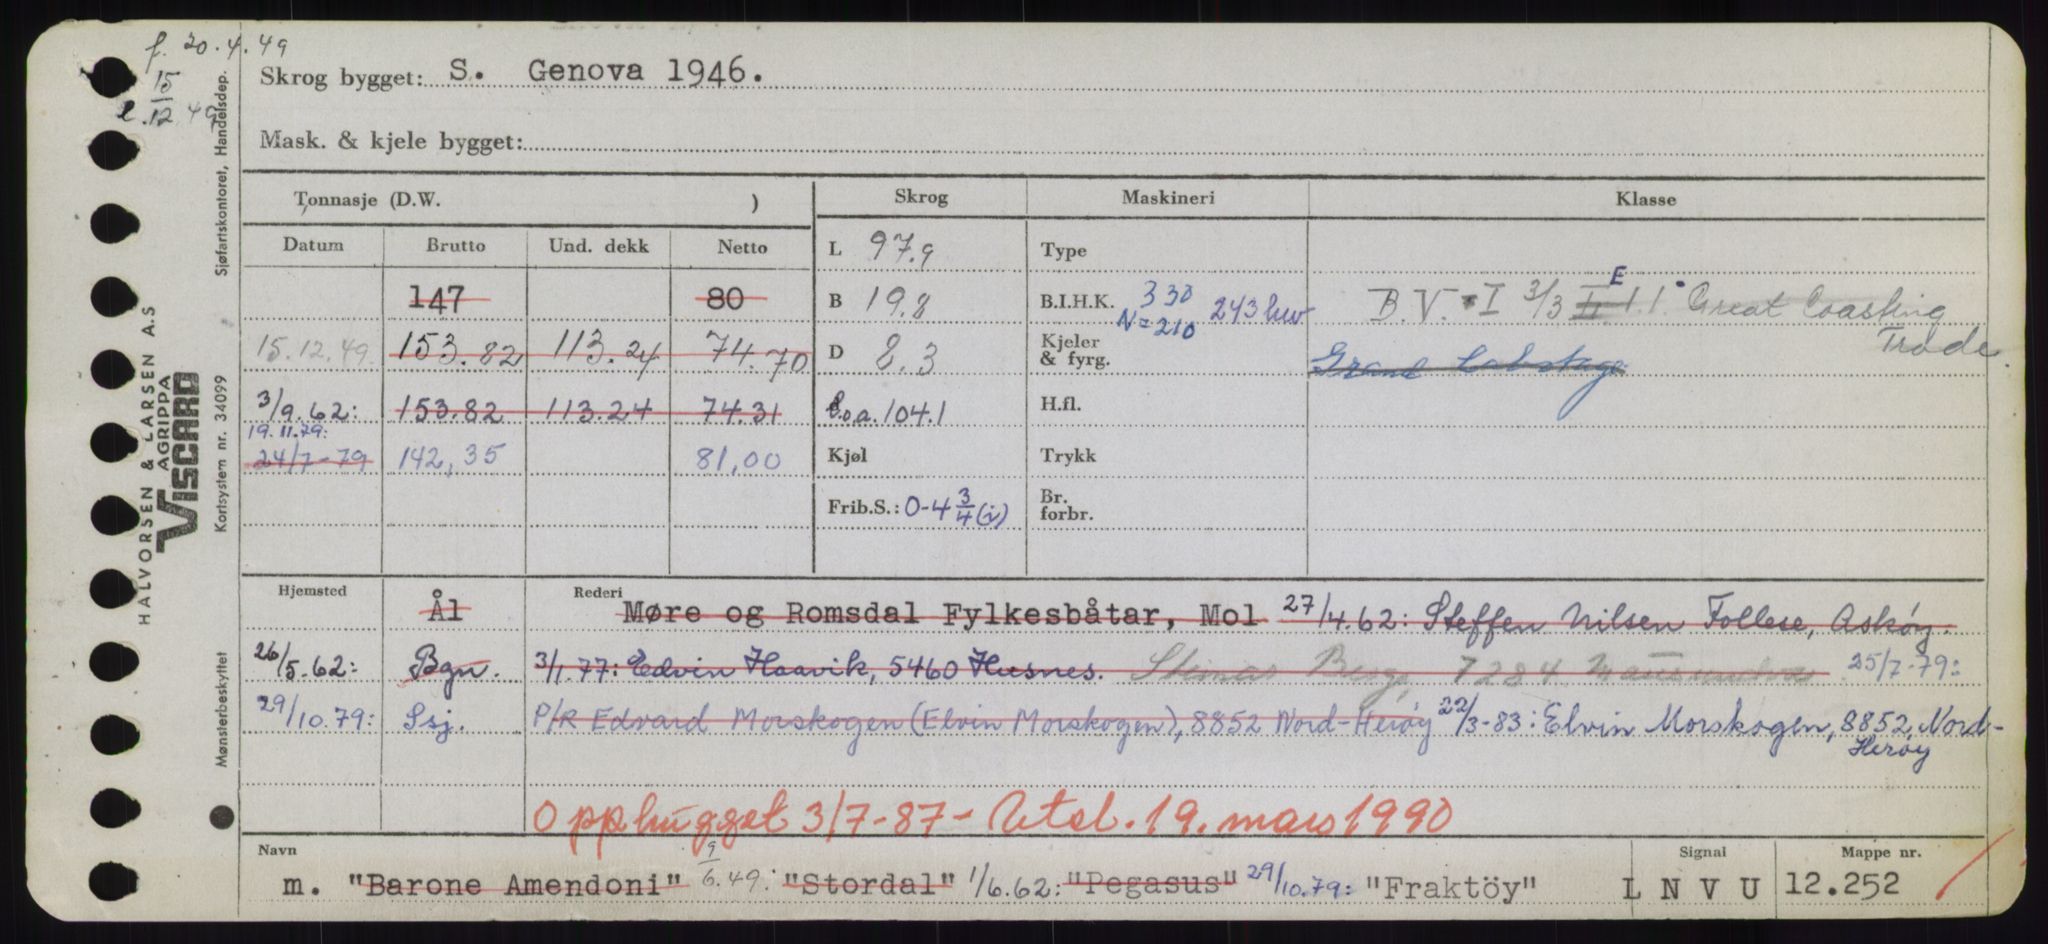 f. 20.4.49
15
l. 12.49
Skrog bygget: S. Genova 1946.
Mask. & kjele bygget:
Tonnasje (D.W. ) Skrog Maskineri Klasse
Datum Brutto Und. dekk Netto L 97.9 Type
147 80 B 19.8 B.I.H.K. 330 243 hw B.V. I 3/3 II E 1.1. Great Coasting
N=210
15.12.49. 153.82 113.24 74.70 D 8.3 Kjeler & fyrg. Grand Cabotage Trade.
3/9.62: 153.82 113.24 74.31 l.o.a. 104.1 H.fl.
19.11.79:
24/7-79 142,35 81,00 Kjøl Trykk
Frib.S.: 0-4 3/4 (i) Br. forbr.
Hjemsted Ål Rederi Møre og Romsdal Fylkesbåtar, Mol 27/4.62: Steffen Nilsen Follese, Askøy.
26/5.62: Bgn. 3/1.77: Edvin Haavik, 5460 Husnes. Berge, 7284 25/7-79:
29/10.79: Ssj. P/R Edvard Morskogen (Elvin Morskogen), 8852 Nord-Herøy 22/3-83: Elvin Morskogen, 8852, Nord-
Herøy
Opphugget 3/7-87 - Utsl. 19. mars 1990
Navn Signal Mappe nr.
m. "Barone Amendoni" 9/6.49: "Stordal" 1/6.62: "Pegasus" 29/10.79: "Fraktöy" L N V U 12.252
Sjøfartskontoret, Handelsdep.
Kortsystem nr. 34099
Mønsterbeskyttet
HALVORSEN & LARSEN A.S
AGRIPPA
VISCARD